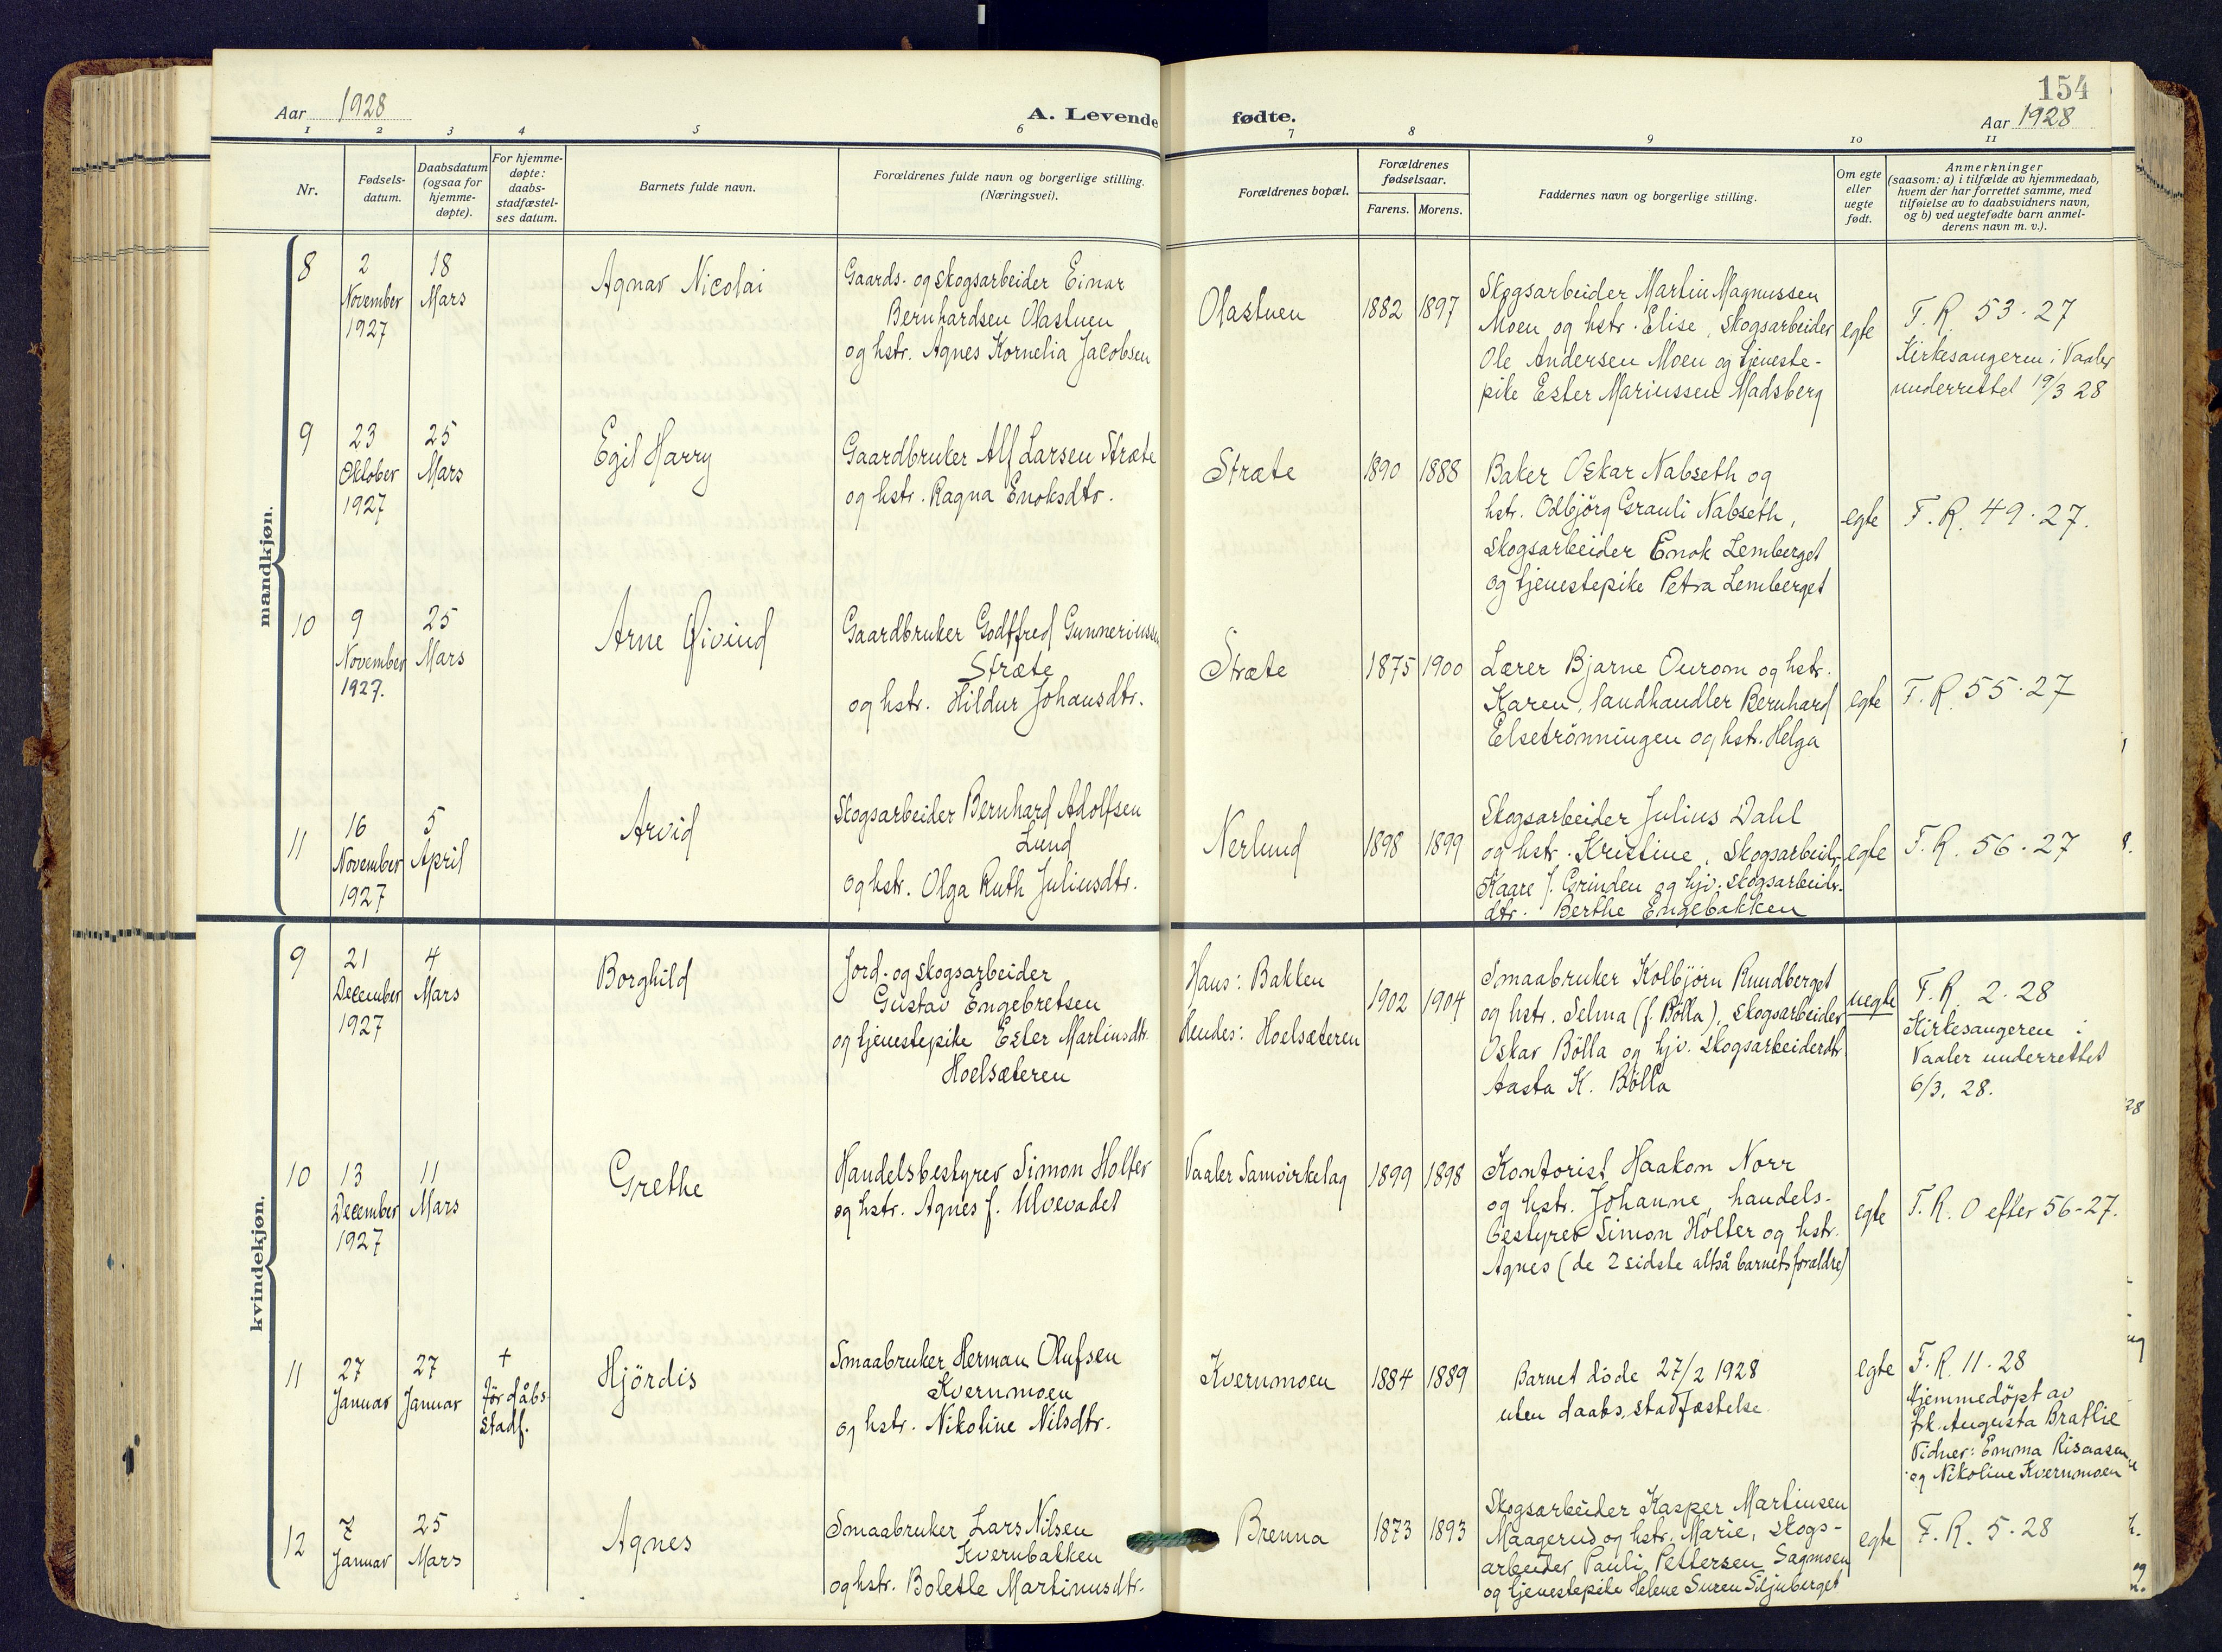 154
Aar 1928
A. Levende fødte.
Aar 1928
1 2 3 4 5 6 7 8 9 10 11
Nr.
Fødsels-
datum.
Daabsdatum
(ogsaa for
hjemme-
døpte).
For hjemme-
døpte:
daabs-
stadfæstel-
ses datum.
Barnets fulde navn.
Forældrenes fulde navn og borgerlige stilling.
(Næringsvei).
Forældrenes bopæl.
Forældrenes
fødselsaar.
Farens. Morens.
Faddernes navn og borgerlige stilling.
Om egte
eller
uegte
født.
Anmerkninger
(saasom: a) i tilfælde av hjemmedaab,
hvem der har forrettet samme, med
tilføielse av to daabsvidners navn,
og b) ved uegtefødte barn anmel-
derens navn m. v.).
mandkjøn.
8
2
November
1927
18
Mars
Agnar Nicolai
Gaards- og skogsarbeider Einar
Bernhardsen Olastuen
og hstr. Agnes Kornelia Jacobsen
Olastuen
1882
1897
Skogsarbeider Martin Magnussen
Moen og hstr. Elise, skogsarbeider
Ole Andersen Moen og tjeneste-
pike Ester Mariussen Madsberg
egte
F. R. 53 · 27
Kirkesangeren i Vaaler
underrettet 19/3 28
9
23
Oktober
1927
25
Mars
Egil Harry
Gaardbruker Alf Larsen Stræte
og hstr. Ragna Enoksdtr.
Stræte
1890
1888
Baker Oskar Nabseth og
hstr. Odbjörg Grauli Nabseth,
skogsarbeider Enok Lemberget
og tjenestepike Petra Lemberget
egte
F. R. 49 · 27.
10
9
November
1927.
25
Mars
Arne Øivind
Gaardbruker Godffred Gunneriussen
Stræte
og hstr. Hildur Johansdtr.
Stræte
1875
1900
Lærer Bjarne Ourom og hstr.
Karen, landhandler Bernhard
Elsetrönningen og hstr. Helga
egte
F. R. 55 · 27
11
16
November
1927
5
April
Arvid
Skogsarbeider Bernhard Adolfsen
Lund
og hstr. Olga Ruth Juliusdtr.
Nerlund
1898
1899
Skogsarbeider Julius Dahl
og hstr. Kristine, skogsarbeidr.
Kaare J. Grinden og hjv. skogsarbeidr.
dtr. Berthe Engebakken
egte
F. R. 56 · 27
kvindekjøn.
9
21
December
1927
4
Mars
Borghild
Jord- og skogsarbeider
Gustav Engebretsen
og tjenestepike Ester Martinsdtr.
Hoelsæteren
Hans: Bakken
Hendes: Hoelsæteren
1902
1904
Smaabruker Kolbjörn Rundberget
og hstr. Selma (f. Bölla), skogsarbeider
Oskar Bölla og hjv. skogsarbeiderdtr.
Aasta K. Bölla
uegte
F. R. 2 · 28
Kirkesangeren i
Vaaler underrettet
6/3. 28.
10
13
December
1927
11
Mars
Grethe
Handelsbestyrer Simon Holter
og hstr. Agnes f. Ulvevadet
Vaaler Samvirkelag
1899
1898
Kontorist Haakon Norr
og hstr. Johanne, handels-
bestyrer Simon Holter og hstr.
Agnes (de 2 sidste altså barnets forældre)
egte
F. R. 0 efter 56-27.
11
27
Januar
27
Januar
+
för dåbs-
stadf.
Hjördis
Smaabruker Herman Olufsen
Kvernmoen
og hstr. Nikoline Nilsdtr.
Kvernmoen
1884
1889
Barnet döde 27/2 1928
uten daabs-stadfæstelse.
egte
F. R. 11 · 28
Hjemmedöpt av
frk. Augusta Bratlie
Vidner: Emma Risaasen
og Nikoline Kvernmoen
12
7
Januar
25
Mars
Agnes
Smaabruker Lars Nilsen
Kvernbakken
og hstr. Bolette Martinusdtr.
Brenna
1873
1893
Skogsarbeider Kasper Martinsen
Maagerud og hstr. Marie, skogs-
arbeider Pauli Pettersen Sagmoen
og tjenestepike Helene Suren Siljuberget
egte
F. R. 5 · 28